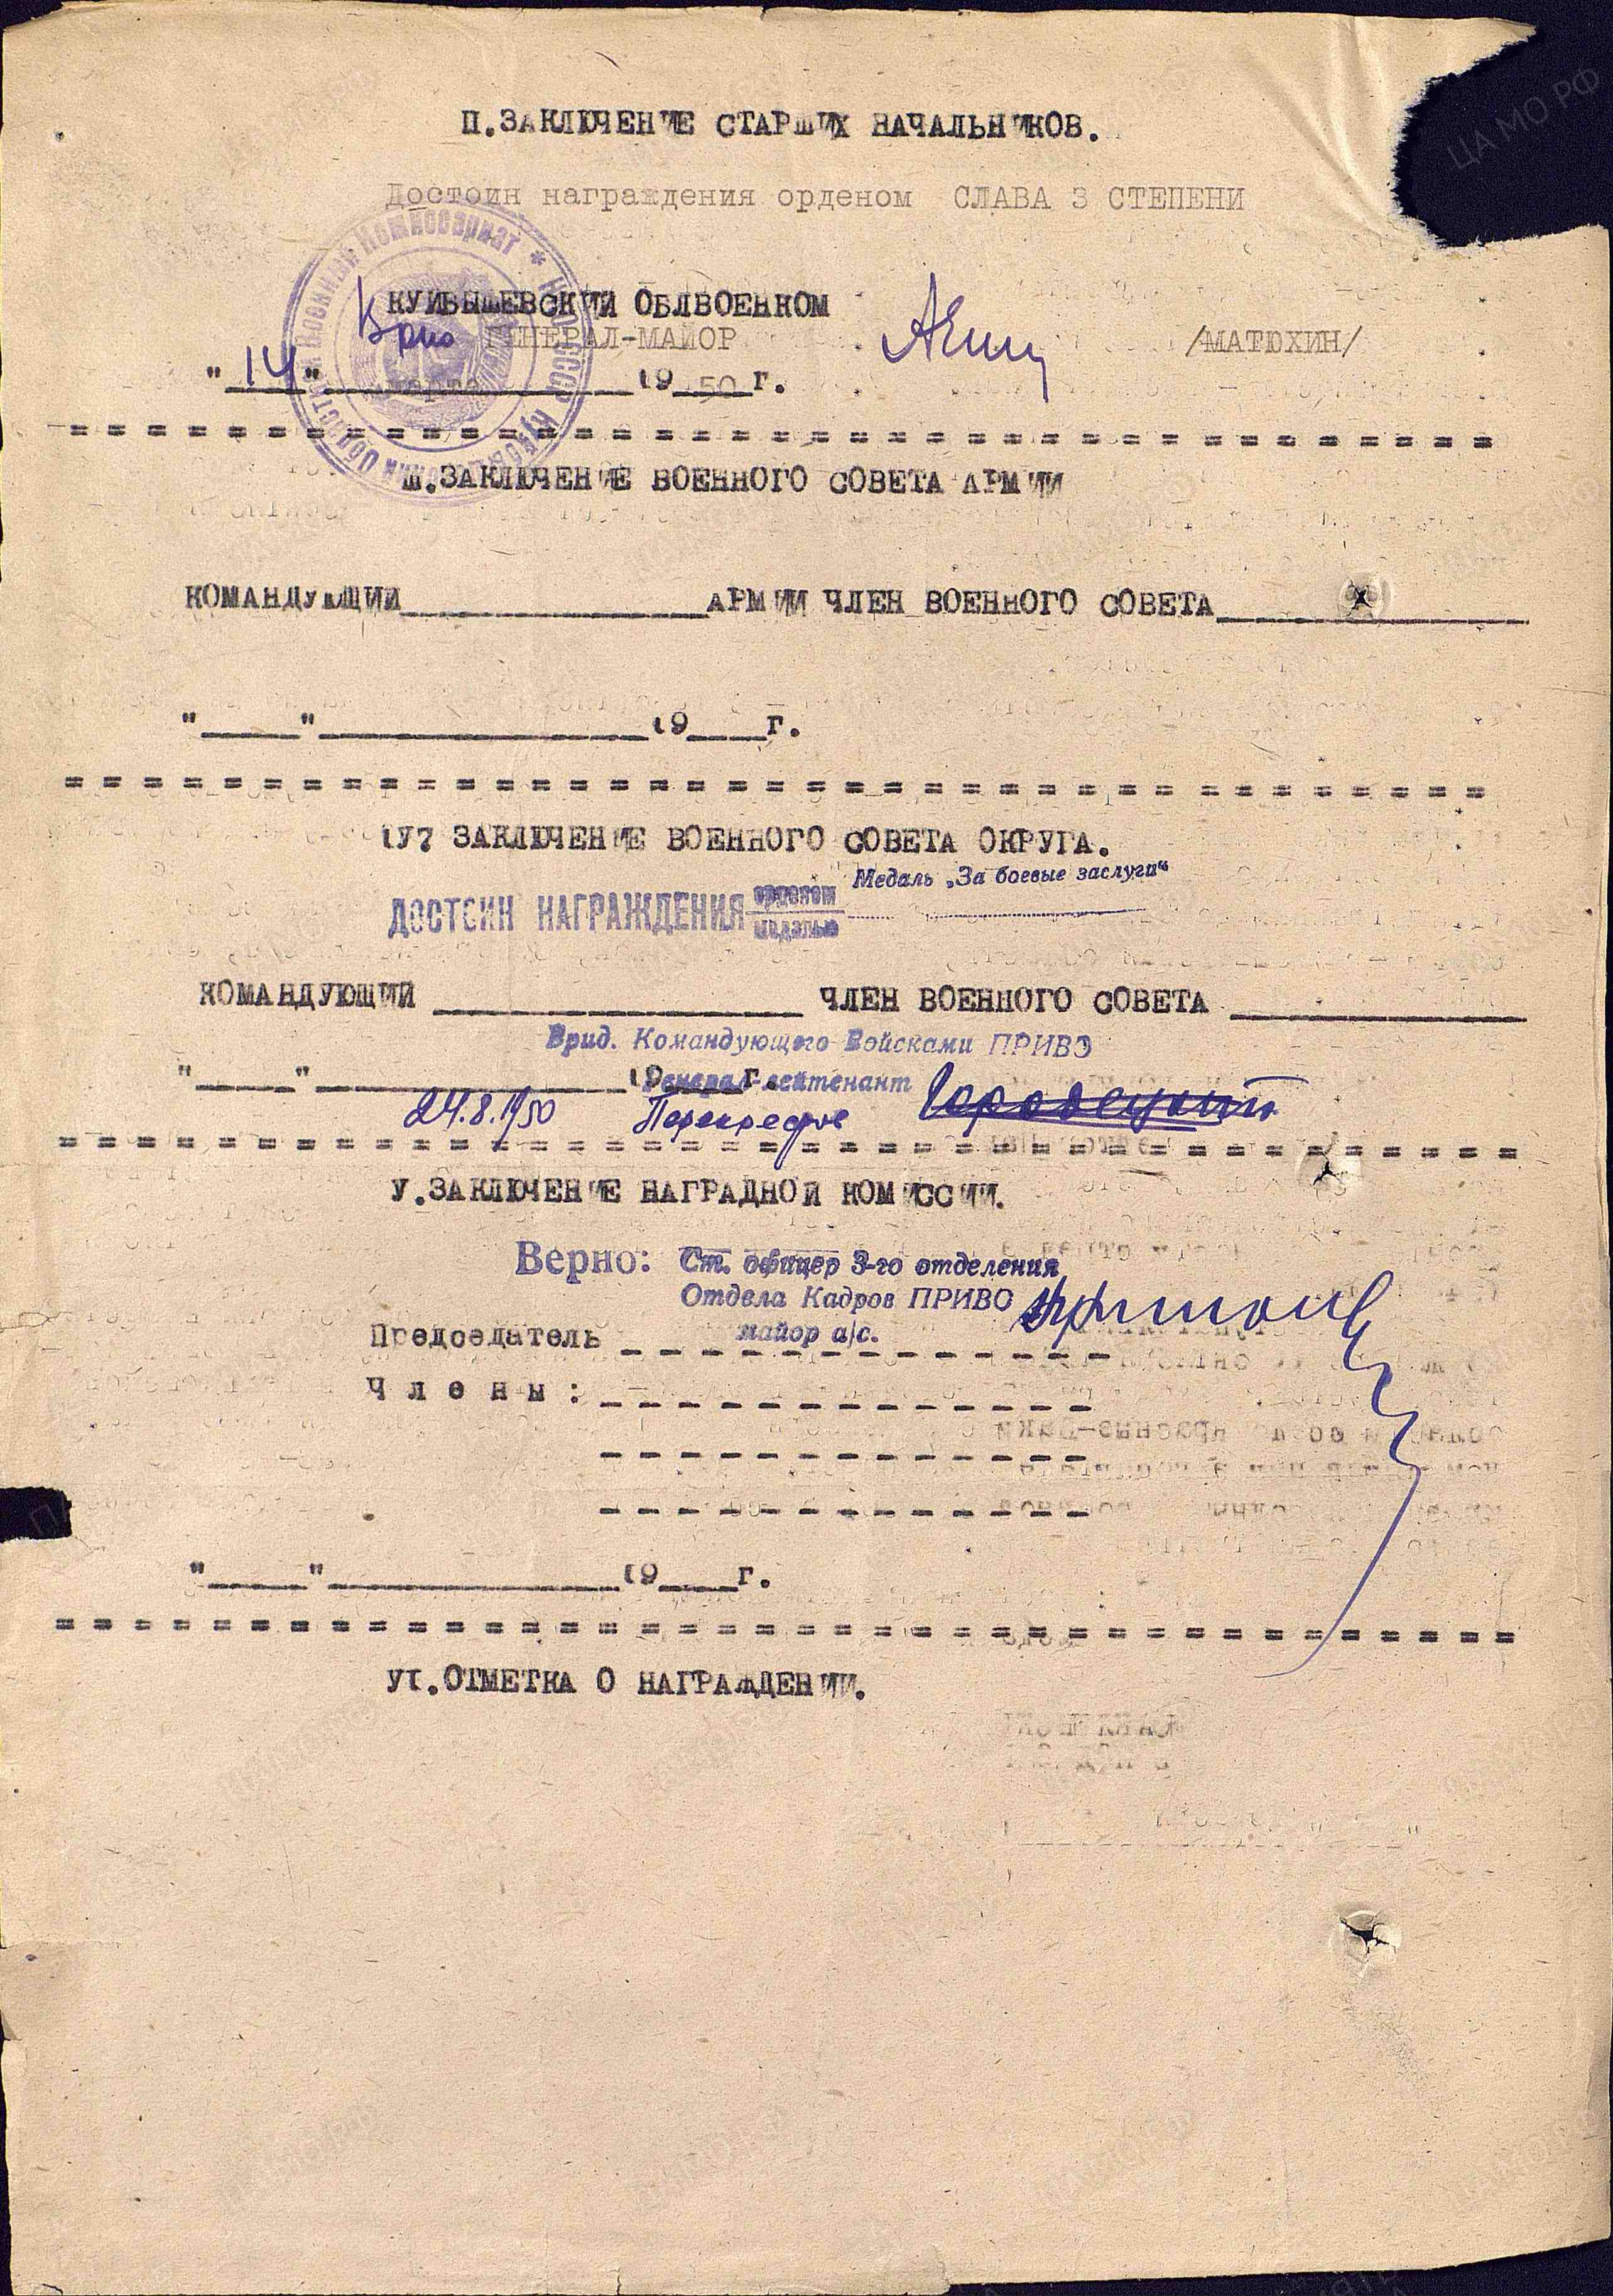 П.ЗАКЛЮЧЕНИЕ СТАРШИХ НАЧАЛЬНИКОВ.
Достоин награждения орденом СЛАВА 3 СТЕПЕНИ
КУЙБЫШЕВСКИЙ ОБЛВОЕНКОМ
Врио ГЕНЕРАЛ-МАЙОР /МАТЮХИН/
"14" марта 1950 г.
Ш.ЗАКЛЮЧЕНИЕ ВОЕННОГО СОВЕТА АРМИИ
КОМАНДУЮЩИЙ АРМИИ ЧЛЕН ВОЕННОГО СОВЕТА
"____"____________19___г.
1У7 ЗАКЛЮЧЕНИЕ ВОЕННОГО СОВЕТА ОКРУГА.
Медаль „За боевые заслуги“
ДОСТОИН НАГРАЖДЕНИЯ орденом
медалью
КОМАНДУЮЩИЙ ЧЛЕН ВОЕННОГО СОВЕТА
Врид. Командующего Войсками ПРИВО
"____"____________19___г.
Генерал-лейтенант
24.8.1950
У.ЗАКЛЮЧЕНИЕ НАГРАДНОЙ КОМИССИИ.
Верно: Ст. офицер 3-го отделения
Отдела Кадров ПРИВО
майор а/с.
Председатель
Члены:
"____"____________19___г.
У1.ОТМЕТКА О НАГРАЖДЕНИИ.
ЦА МО РФ